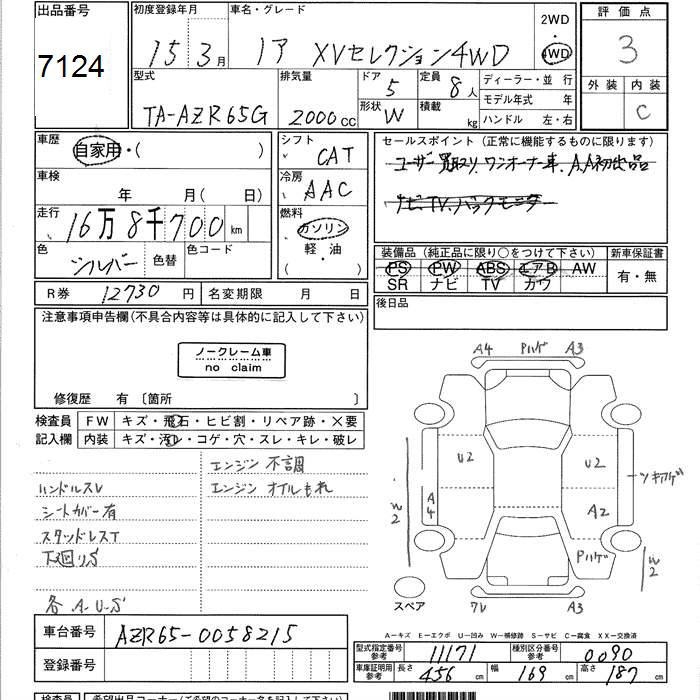 出品番号
7124
初度登録年月
15年3月
車名・グレード
17 XVセレクション4WD
2WD
・
4WD
評価点
3
外装 内装
C
型式
TA-AZR65G
排気量
2000cc
ドア
5
形状
W
定員
8人
積載
kg
ディーラー・並行
モデル年式 年
ハンドル 左・右
車歴
自家用・( )
車検
年 月( 日)
走行
16万8千700km
色
シルバー
色替
色コード
シフト
CAT
冷房
AAC
燃料
ガソリン
軽・油
( )
セールスポイント(正常に機能するものに限ります)
ユーザー買取り、ワンオーナー車、AA初出品
ナビTV、バックモニター
装備品(純正品に限り○をつけて下さい)
PS PW ABS エアB AW
SR ナビ TV カワ
新車保証書
有・無
後日品
R券 12730円 名変期限 月 日
注意事項申告欄(不具合内容等は具体的に記入して下さい)
ノークレーム車
no claim
修復歴 有〔箇所 〕
検査員
記入欄
FW キズ・飛石・ヒビ割・リペア跡・×要
内装 キズ・汚レ・コゲ・穴・スレ・キレ・破レ
エンジン不調
エンジンオイルもれ
ハンドルスレ
シートカバー有
スタッドレスT
下廻りS
各A・U・S
A4 Pハゲ A3
U2 U2
ツキアゲ
W2 A4 A2
Pハゲ
W2
スペア
7V A3
A…キズ E…エクボ U…凹み W…補修跡 S…サビ C…腐食 XX…交換済
車台番号 AZR65-0058215
登録番号
型式指定番号 参考 11171 種別区分番号 参考 0090
車庫証明用 参考 長さ 456cm 幅 169cm 高さ 187cm
検査員 希望出品コーナー(ご希望のコーナー名を記入して下さい)